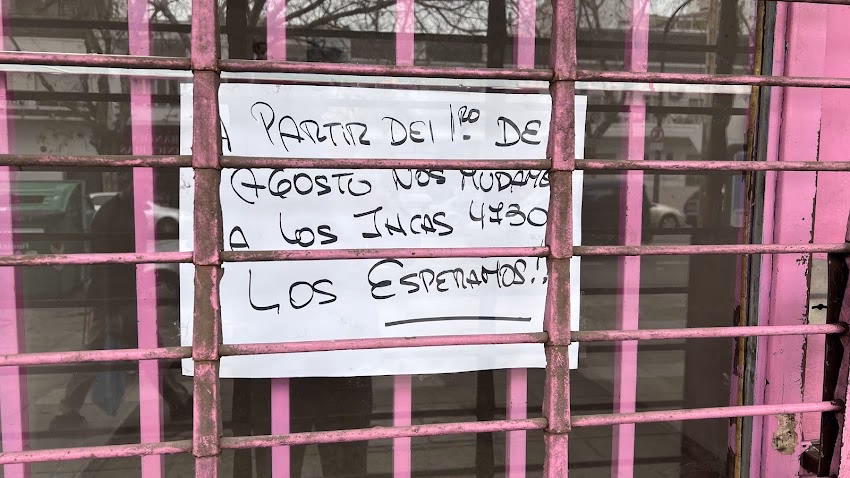 A PARTIR DEL 1RO DE
AGOSTO NOS MUDAMOS
A LOS INCAS 4730
LOS ESPERAMOS!!